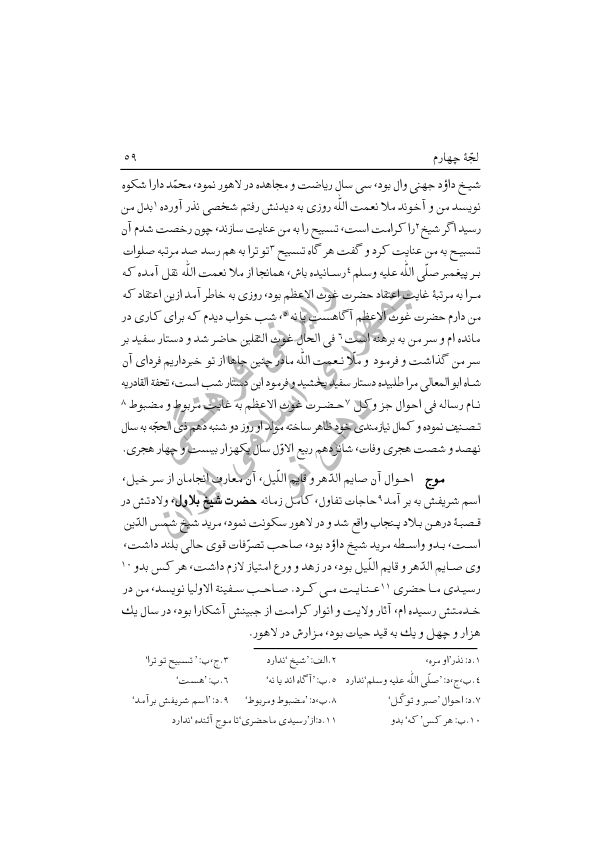 لجّهٔ چهارم ۵۹
شیخ داؤد جهنی وال بود، سی سال ریاضت و مجاهده در لاهور نمود، محمّد دارا شکوه
نویسد من و آخوند ملا نعمت الله روزی به دیدنش رفتم شخصی نذر آورده ۱ بدل من
رسید اگر شیخ ۲ را کرامت است، تسبیح را به من عنایت سازند، چون رخصت شدم آن
تسبیح به من عنایت کرد و گفت هر گاه تسبیح ۳ تو ترا به هم رسد صد مرتبه صلوات
بر پیغمبر صلّی الله علیه وسلم ۴ رسانیده باش، همانجا از ملا نعمت الله نقل آمده که
مرا به مرتبهٔ غایت اعتقاد حضرت غوث الاعظم بود، روزی به خاطر آمد ازین اعتقاد که
من دارم حضرت غوث الاعظم آگاهست یا نه ۵، شب خواب دیدم که برای کاری در
مانده ام و سر من به برهنه است ۶ فی الحال غوث الثقلین حاضر شد و دستار سفید بر
سر من گذاشت و فرمود و ملّا نعمت الله مادر چنین جاها از تو خبرداریم فردای آن
شاه ابو المعالی مرا طلبیده دستار سفید بخشید و فرمود این دستار شب است، تحفة القادریه
نام رساله فی احوال جز و کل ۷ حضرت غوث الاعظم به غایت مربوط و مضبوط ۸
تصنیف نموده و کمال نیازمندی خود ظاهر ساخته مولد او روز دو شنبه دهم ذی الحجّه به سال
نهصد و شصت هجری وفات، شانزدهم ربیع الاوّل سال یکهزار بیست و چهار هجری.
موج احوال آن صایم الدّهر و قایم اللّیل، آن معارف انجامان از سر خیل،
اسم شریفش به بر آمد ۹ حاجات تفاول، کامل زمانه حضرت شیخ بلاول، ولادتش در
قصبهٔ درهن بلاد پنجاب واقع شد و در لاهور سکونت نمود، مرید شیخ شمس الدّین
است، بدو واسطه مرید شیخ داؤد بود، صاحب تصرّفات قوی حالی بلند داشت،
وی صایم الدّهر و قایم اللّیل بود، در زهد و ورع امتیاز لازم داشت، هر کس بدو ۱۰
رسیدی ما حضری ۱۱ عنایت می کرد. صاحب سفینة الاولیا نویسد، من در
خدمتش رسیده ام، آثار ولایت و انوار کرامت از جبینش آشکارا بود، در سال یك
هزار و چهل و یك به قید حیات بود، مزارش در لاهور.
۱.د: نذر'او مره، ۲.الف: 'شیخ 'ندارد ۳.ج،ب: 'تسبیح تو ترا'
۴.ب،ج،د: 'صلّی الله علیه وسلم'ندارد ۵.ب: 'آگاه اند یا نه' ۶.ب: 'هست'
۷.د: احوال 'صبر و توکّل' ۸.ب،د: 'مضبوط ومربوط' ۹.د: 'اسم شریفش برآمد'
۱۰.ب: هر کس' که' بدو ۱۱.د:از'رسیدی ماحضری'تا موج آئنده'ندارد